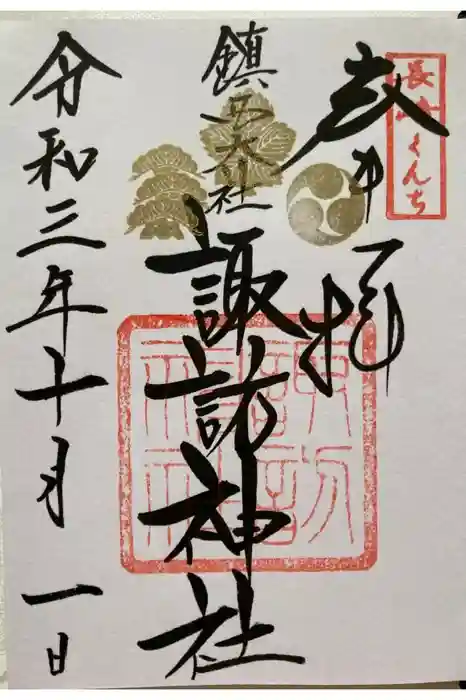 長崎くんち
奉拝
鎮西大社
諏訪神社
諏訪神社
令和三年十月一日